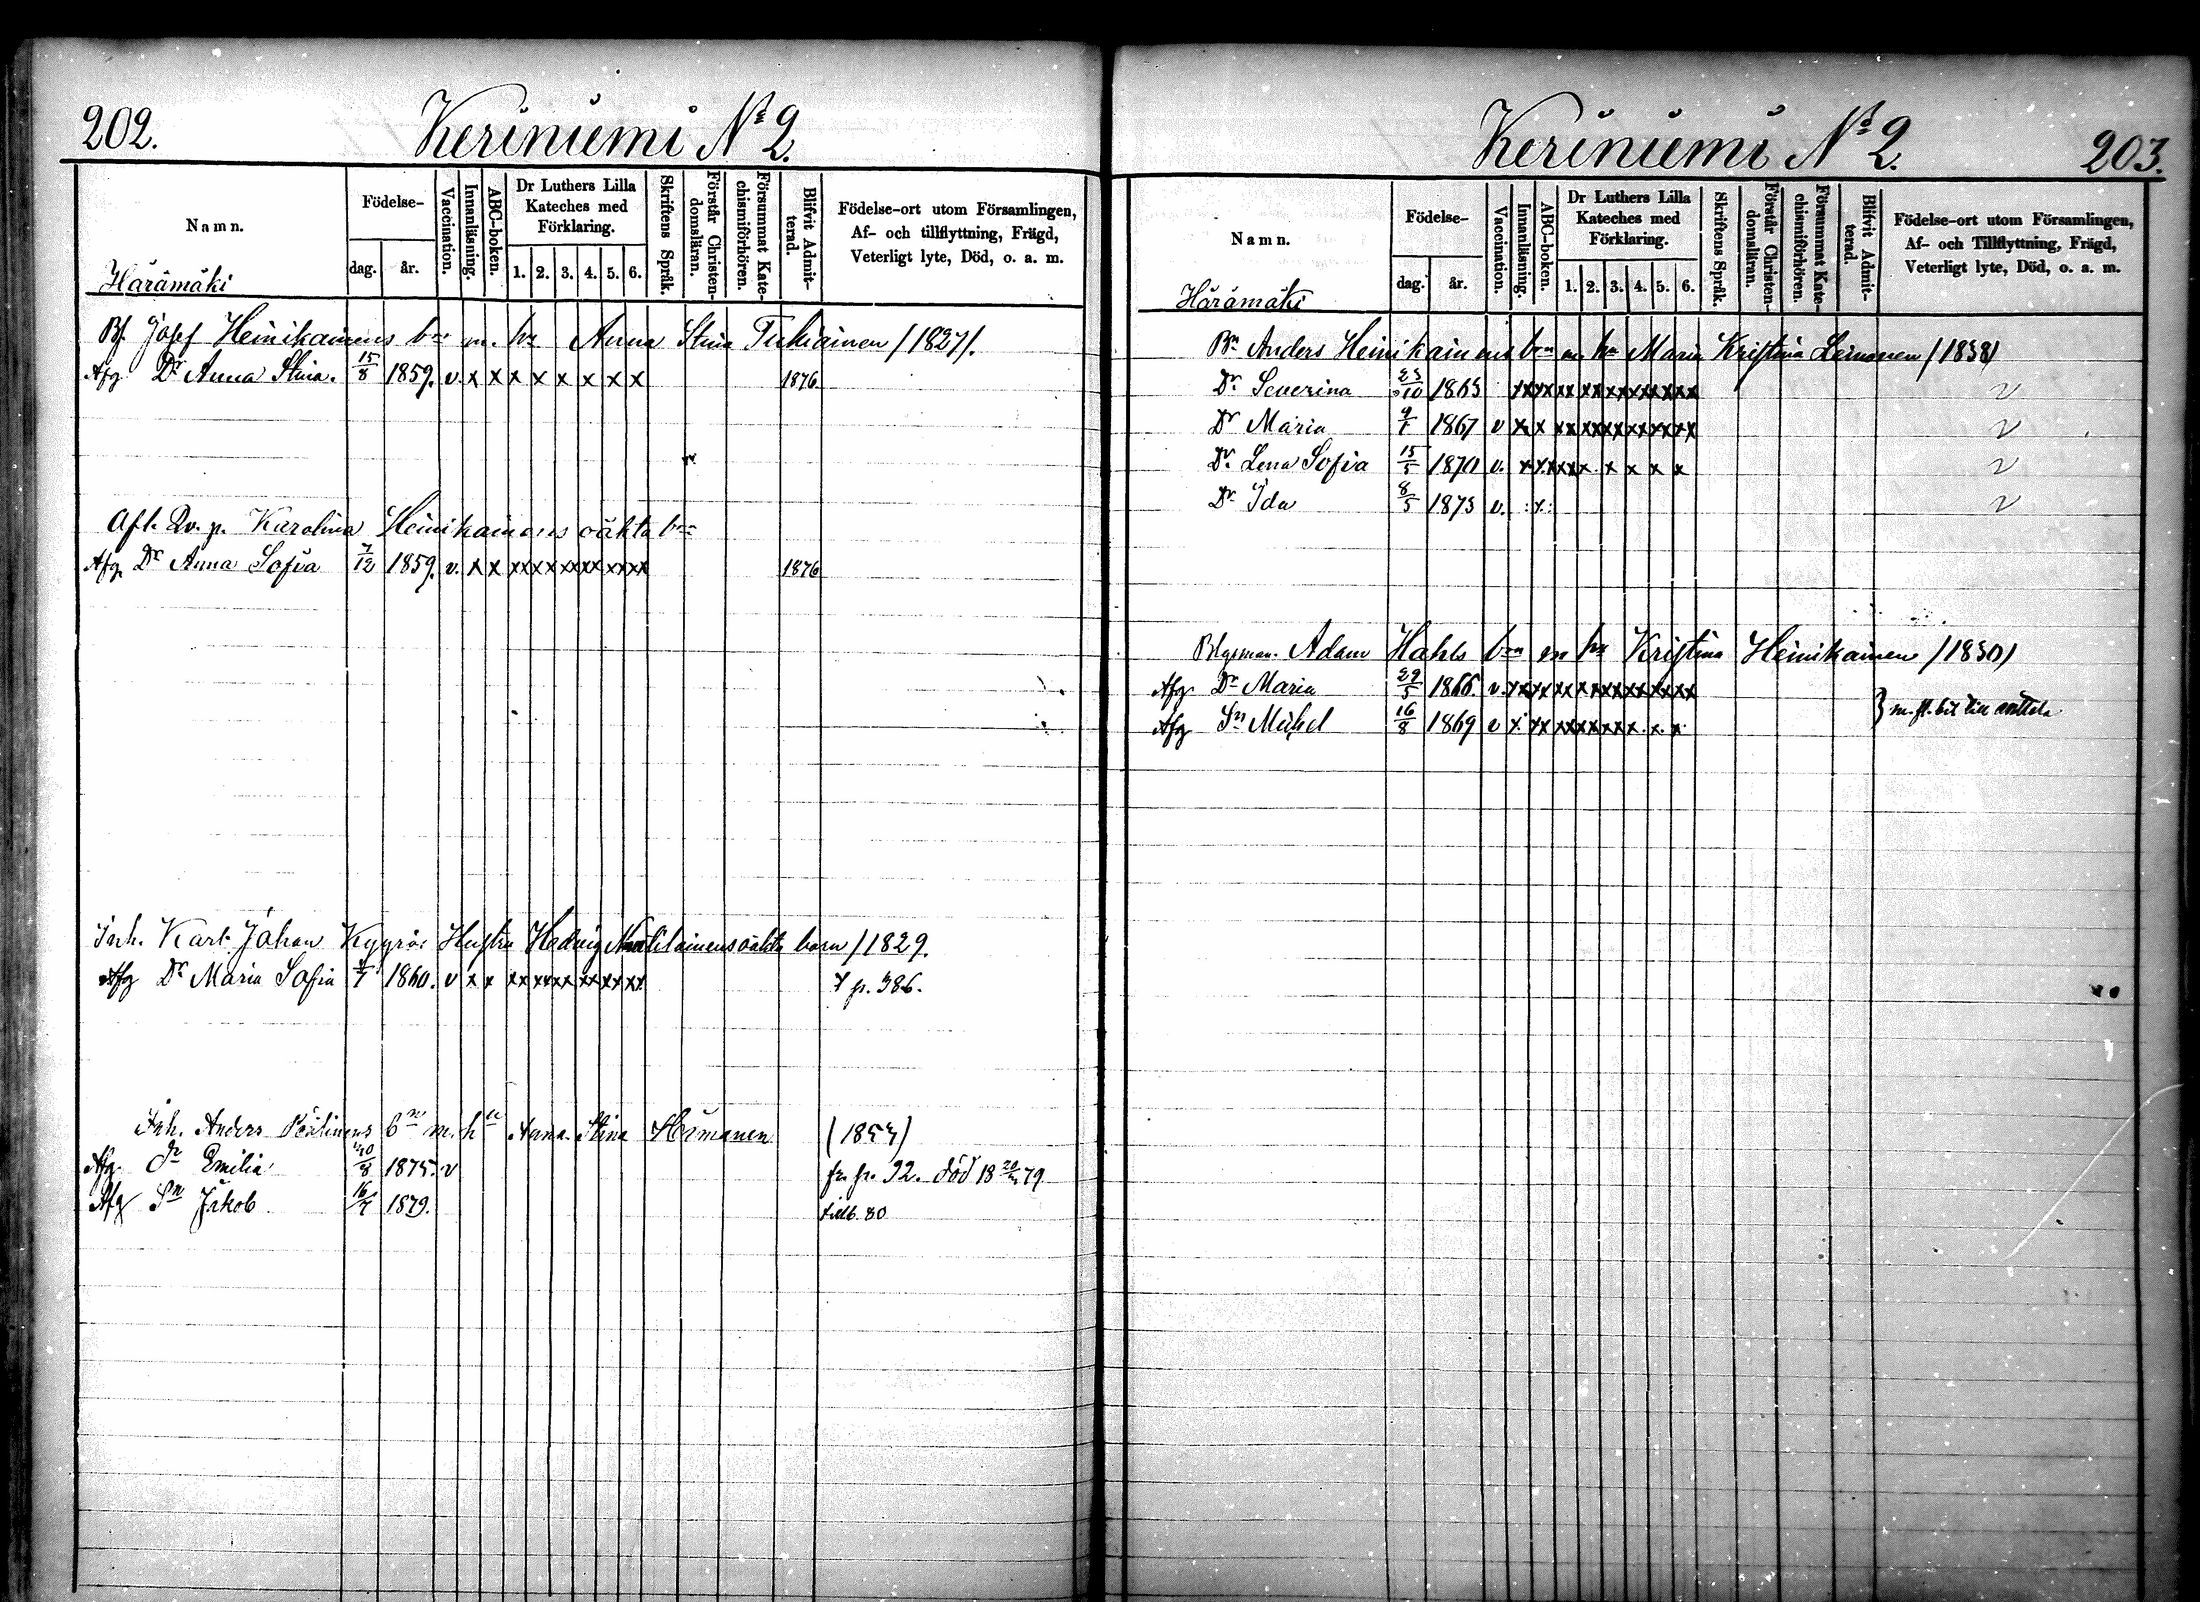 202.
Keriniemi № 2.
Namn.
Födelse-
dag.
år.
Vaccination.
Innanläsning.
ABC-boken.
Dr Luthers Lilla
Kateches med
Förklaring.
1. 2. 3. 4. 5. 6.
Skriftens Språk.
Förstår Christen-
domsläran.
Försummat Kate-
chismiförhören.
Blifvit Admit-
terad.
Födelse-ort utom Församlingen,
Af- och tillflyttning, Frägd,
Veterligt lyte, Död, o. a. m.
Härämäki
Josef Heinikainens bn m. hu Anna Stina Tukiainen /1827/.
Afg Dr Anna Stina. 15/8 1859. v. x x x x x x x x 1876
Afl. Qv. p. Karolina Heinikainens oäkta bn
Afg Dr Anna Sofia 7/12 1859. v. x x xx xx xx xx xx xx 1876
Inh. Karl Johan Kyyrös Hustru Hedvig oäkta barn /1829.
Afg Dr Maria Sofia 1860. v x x xx xx xx xx xx xx p. 386.
Inh. Anders bn m. hu Anna Stina (1854)
Afg. dr Emilia 20/8 1875. v fr. p. 92. död 18 79
Afg Sn Jakob 16/7 1879. 80
Keriniemi № 2.
203.
Namn.
Födelse-
dag.
år.
Vaccination.
Innanläsning.
ABC-boken.
Dr Luthers Lilla
Kateches med
Förklaring.
1. 2. 3. 4. 5. 6.
Skriftens Språk.
Förstår Christen-
domsläran.
Försummat Kate-
chismiförhören.
Blifvit Admit-
terad.
Födelse-ort utom Församlingen,
Af- och Tillflyttning, Frägd,
Veterligt lyte, Död, o. a. m.
Härämäki
Bn Anders Heinikainens bn m hu Maria Kristina Leinonen /1838/
Dr. Severina 23/10 1865 xx xx xx xx xx xx xx xx v
Dr Maria 1867 v x x xx xx xx xx xx xx v
Dr. Lena Sofia 15/5 1870 v. x x xx x x x x x v
Dr Ida 8/5 1873 v. x v
Adam Hahls bn m hu Kristina Heinikainen /1830/
Afg Dr Maria 29/5 1866. v. xx xx xx xx xx xx xx xx
Afg Sn Mickel 16/8 1869 v x xx xx xx xx x x x
} m. fl. bet. till